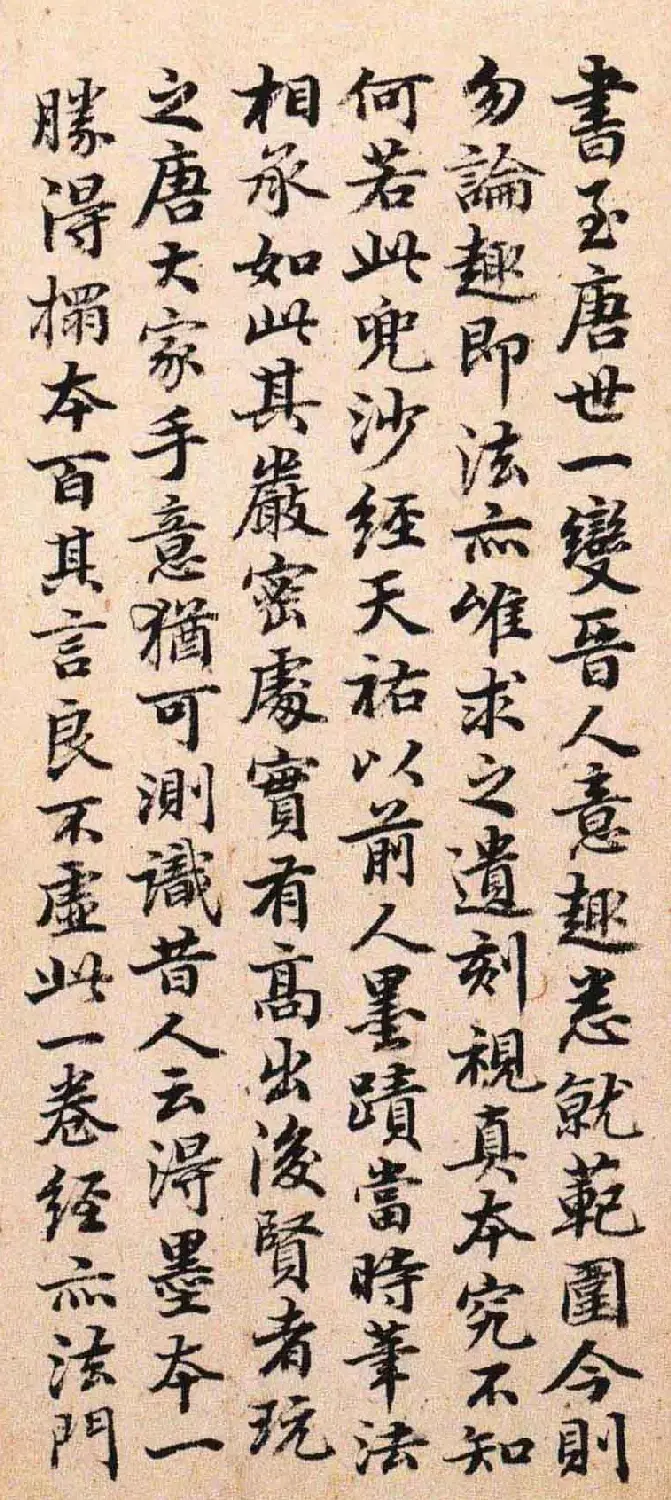 書至唐世一變晉人意趣悉就範圍今則
勿論趣即法亦唯求之遺刻視真本究不知
何若此兜沙經天祐以前人墨蹟當時筆法
相承如此其嚴密處實有高出後賢者玩
之唐大家手意猶可測識昔人云得墨本一
勝得搨本百其言良不虛此一卷經亦法門